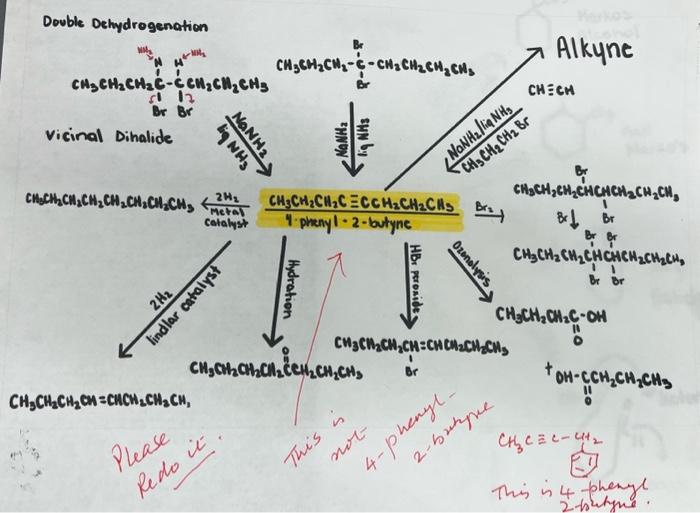 Double Dehydrogenation
NH₂
NH₂
H H
CH₃CH₂CH₂C-CCH₂CH₂CH₃
Br Br
Vicinal Dihalide
NaNH₂
liq NH₃
Br
CH₃CH₂CH₂-C-CH₂CH₂CH₂CH₃
Br
NaNH₂
liq NH₃
Alkyne
CH≡CH
NaNH₂/liq NH₃
CH₃CH₂CH₂Br
CH₃CH₂CH₂CH₂CH₂CH₂CH₂CH₃
2H₂
Metal
Catalyst
CH₃CH₂CH₂C≡CCH₂CH₂CH₃
4-phenyl-2-butyne
Br₂
Br
CH₃CH₂CH₂CHCHCH₂CH₂CH₃
Br
Br
Br Br
CH₃CH₂CH₂CHCHCH₂CH₂CH₃
Br Br
2H₂
lindlar catalyst
Hydration
HBr peroxide
Ozonolysis
CH₃CH₂CH₂C-OH
O
+ OH-CCH₂CH₂CH₃
O
CH₃CH₂CH₂CH=CHCH₂CH₂CH₃
Br
O
CH₃CH₂CH₂CH₂CCH₂CH₂CH₃
CH₃CH₂CH₂CH=CHCH₂CH₂CH₃
Please
Redo it.
This is
not
4-phenyl-
2-butyne
CH₃C≡C-CH₂
This is 4-phenyl
2-butyne.